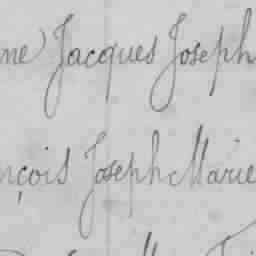 ne) Jacques Joseph
nçois Joseph Marie